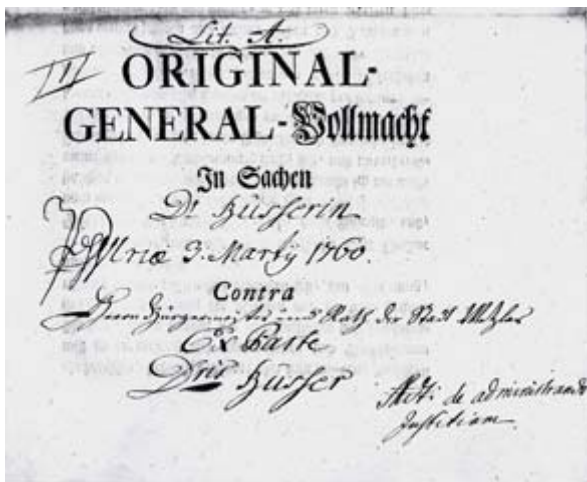 Lit. A.
III
ORIGINAL-
GENERAL-Vollmacht
In Sachen
Dr Hüsserin
3. Martÿ 1760.
Contra
Herrn Bürgermeister und Rath der Stadt Wetzlar
Ex Parte
Hüsser
de administrando
Justitiam